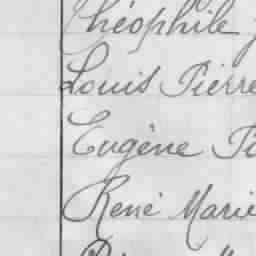 Théophile
Louis Pierre
Eugène
René Marie